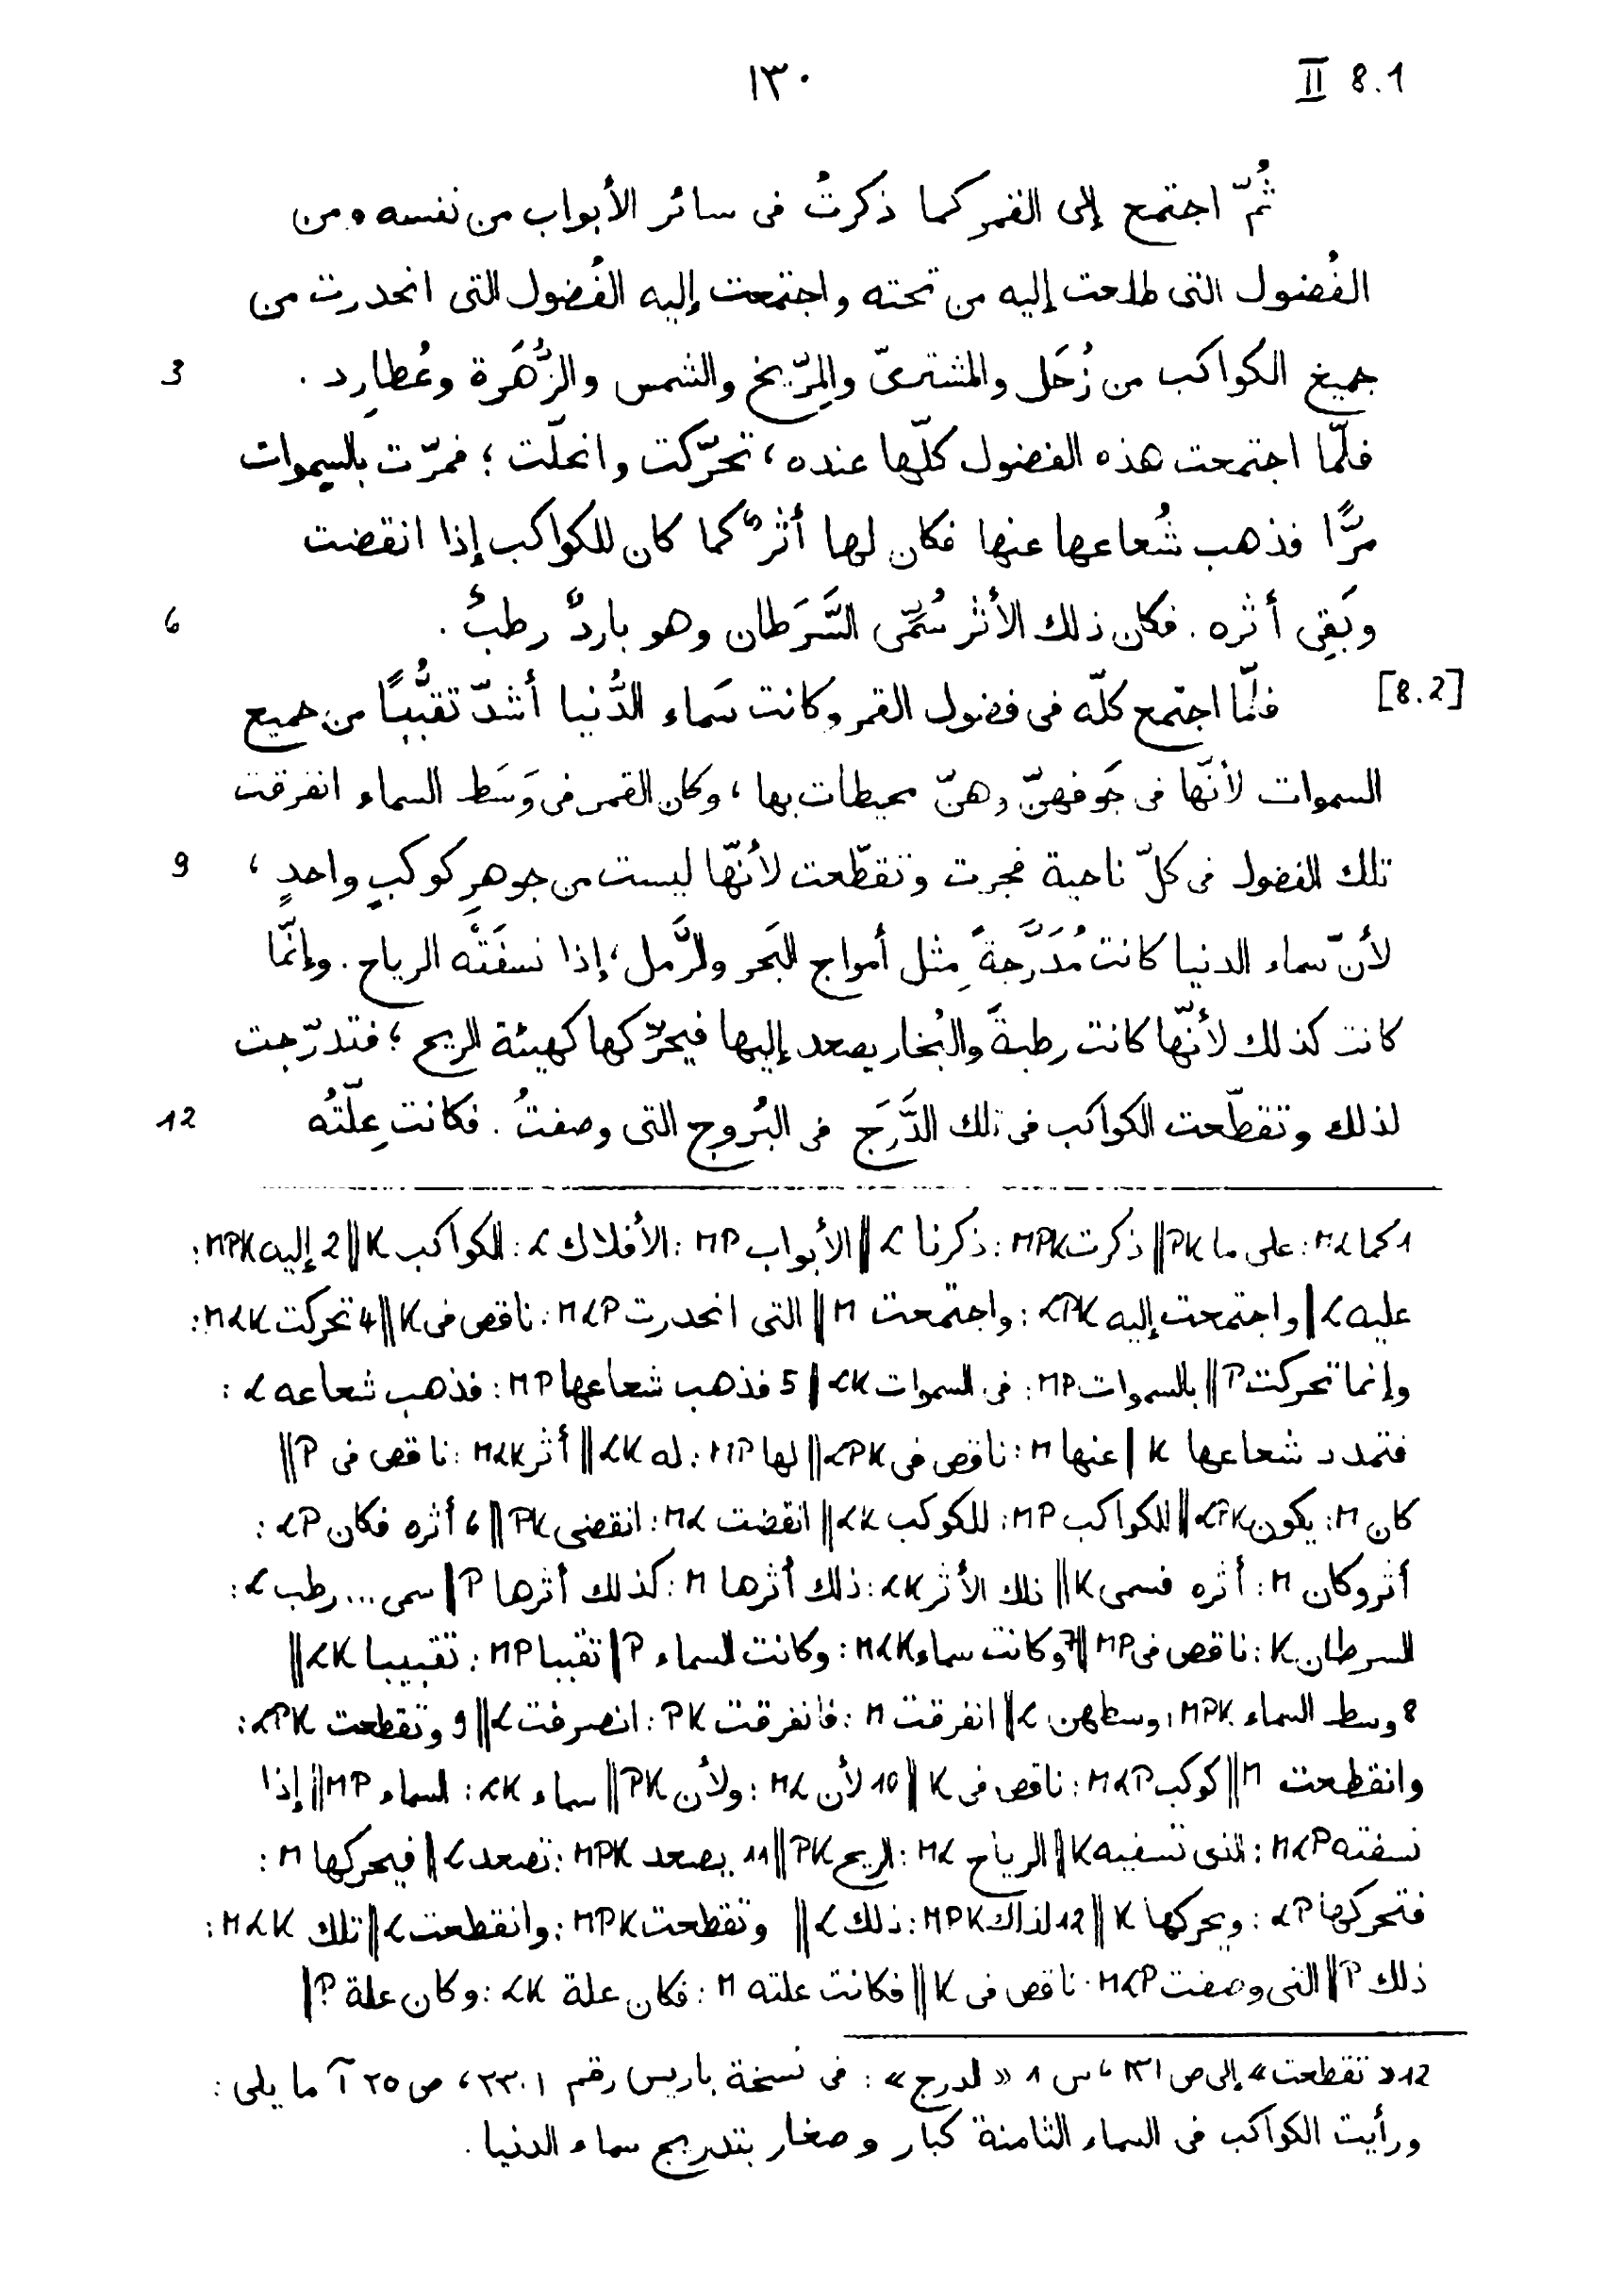 II 8.1
١٣٠
ثُمّ اجتمع إلى القمر كما ذكرتُ فى سائر الأبواب من نفسه ومن
الفُضول التى طلعت إليه من تحته واجتمعت إليه الفُضول التى انحدرت من
جميع الكواكب من زُحَل والمشترىّ والمِرّيخ والشمس والزُّهَرة وعُطارِد . 3
فلمّا اجتمعت هذه الفضول كلّها عنده ، تحرّكت وانحلّت ؛ فمرّت بالسموات
مرًّا فذهب شُعاعها عنها فكان لها أثرٌ كما كان للكواكب إذا انقضت
وبَقِى أثره . فكان ذلك الأثر سُمِّى السَّرَطان وهو باردٌ رطبٌ . 6
[8.2] فلمّا اجتمع كلّه فى فضول القمر وكانت سَماء الدُّنيا أشدّ تقبُّبًا من جميع
السموات لأنّها فى جَوفهنّ وهنّ محيطات بها ، وكان القمر فى وَسَط السماء انفرقت
تلك الفضول فى كلّ ناحية فجرت وتقطّعت لأنّها ليست من جوهرِ كوكبٍ واحدٍ ، 9
لأنّ سماء الدنيا كانت مُدَرَّجةً مِثل أمواج البَحر والرَّمل ، إذا نسفَتْه الرياح . وإنّما
كانت كذلك لأنّها كانت رطبةً والبُخار يصعد إليها فيحرّكها كهيئة الريح ؛ فتدرّجت
لذلك وتقطّعت الكواكب فى تلك الدَّرَج فى البُروج التى وصفتُ . فكانت عِلّتُه 12
1 كما ML : على ما PK || ذكرت MPK : ذكرنا L || الأبواب MP : الأفلاك L : الكواكب K || 2 إليه MPK :
عليه L || واجتمعت إليه LPK : واجتمعت M || التى انحدرت MLP : ناقص فى K || 4 تحركت MLK :
وإنما تحركت P || بالسموات MP : فى السموات LK || 5 فذهب شعاعها MP : فذهب شعاعه L :
فتمدد شعاعها K | عنها M : ناقص فى LPK || لها MP : له LK || أثر MLK : ناقص فى P ||
كان M : يكون LPK || للكواكب MP : للكوكب LK || انقضت ML : انقضى PK || 6 أثره فكان LP :
أثر وكان M : أثره فسمى K || ذلك الأثر LK : ذلك أثرها M : كذلك أثرها P || سمى ... رطب L :
السرطان K : ناقص فى MP || 7 وكانت سماء MLK : وكانت السماء P | تقببا MP : تقبيبا LK ||
8 وسط السماء MPK : وسطهن L || انفرقت M : فانفرقت PK : انصرفت L || 9 وتقطعت LPK :
وانقطعت M || كوكب MLP : ناقص فى K || 10 لأن ML : ولأن PK || سماء LK : السماء MP || إذا
نسفته MLP : الذى تسفيه K || الرياح ML : الريح PK || 11 يصعد MPK : تصعد L || فيحركها M :
فتحركها LP : ويحركها K || 12 لذلك MPK : ذلك L || وتقطعت MPK : وانقطعت L || تلك MLK :
ذلك P || التى وصفت MLP : ناقص فى K || فكانت علته M : فكان علة LK : وكان علة P |
12 « تقطعت » إلى ص ١٣١ ، س ١ « الدرج » : فى نسخة باريس رقم ٢٣٠١ ، ص ٢٥ آ ما يلى :
ورأيت الكواكب فى السماء الثامنة كبار وصغار بتدريج سماء الدنيا .